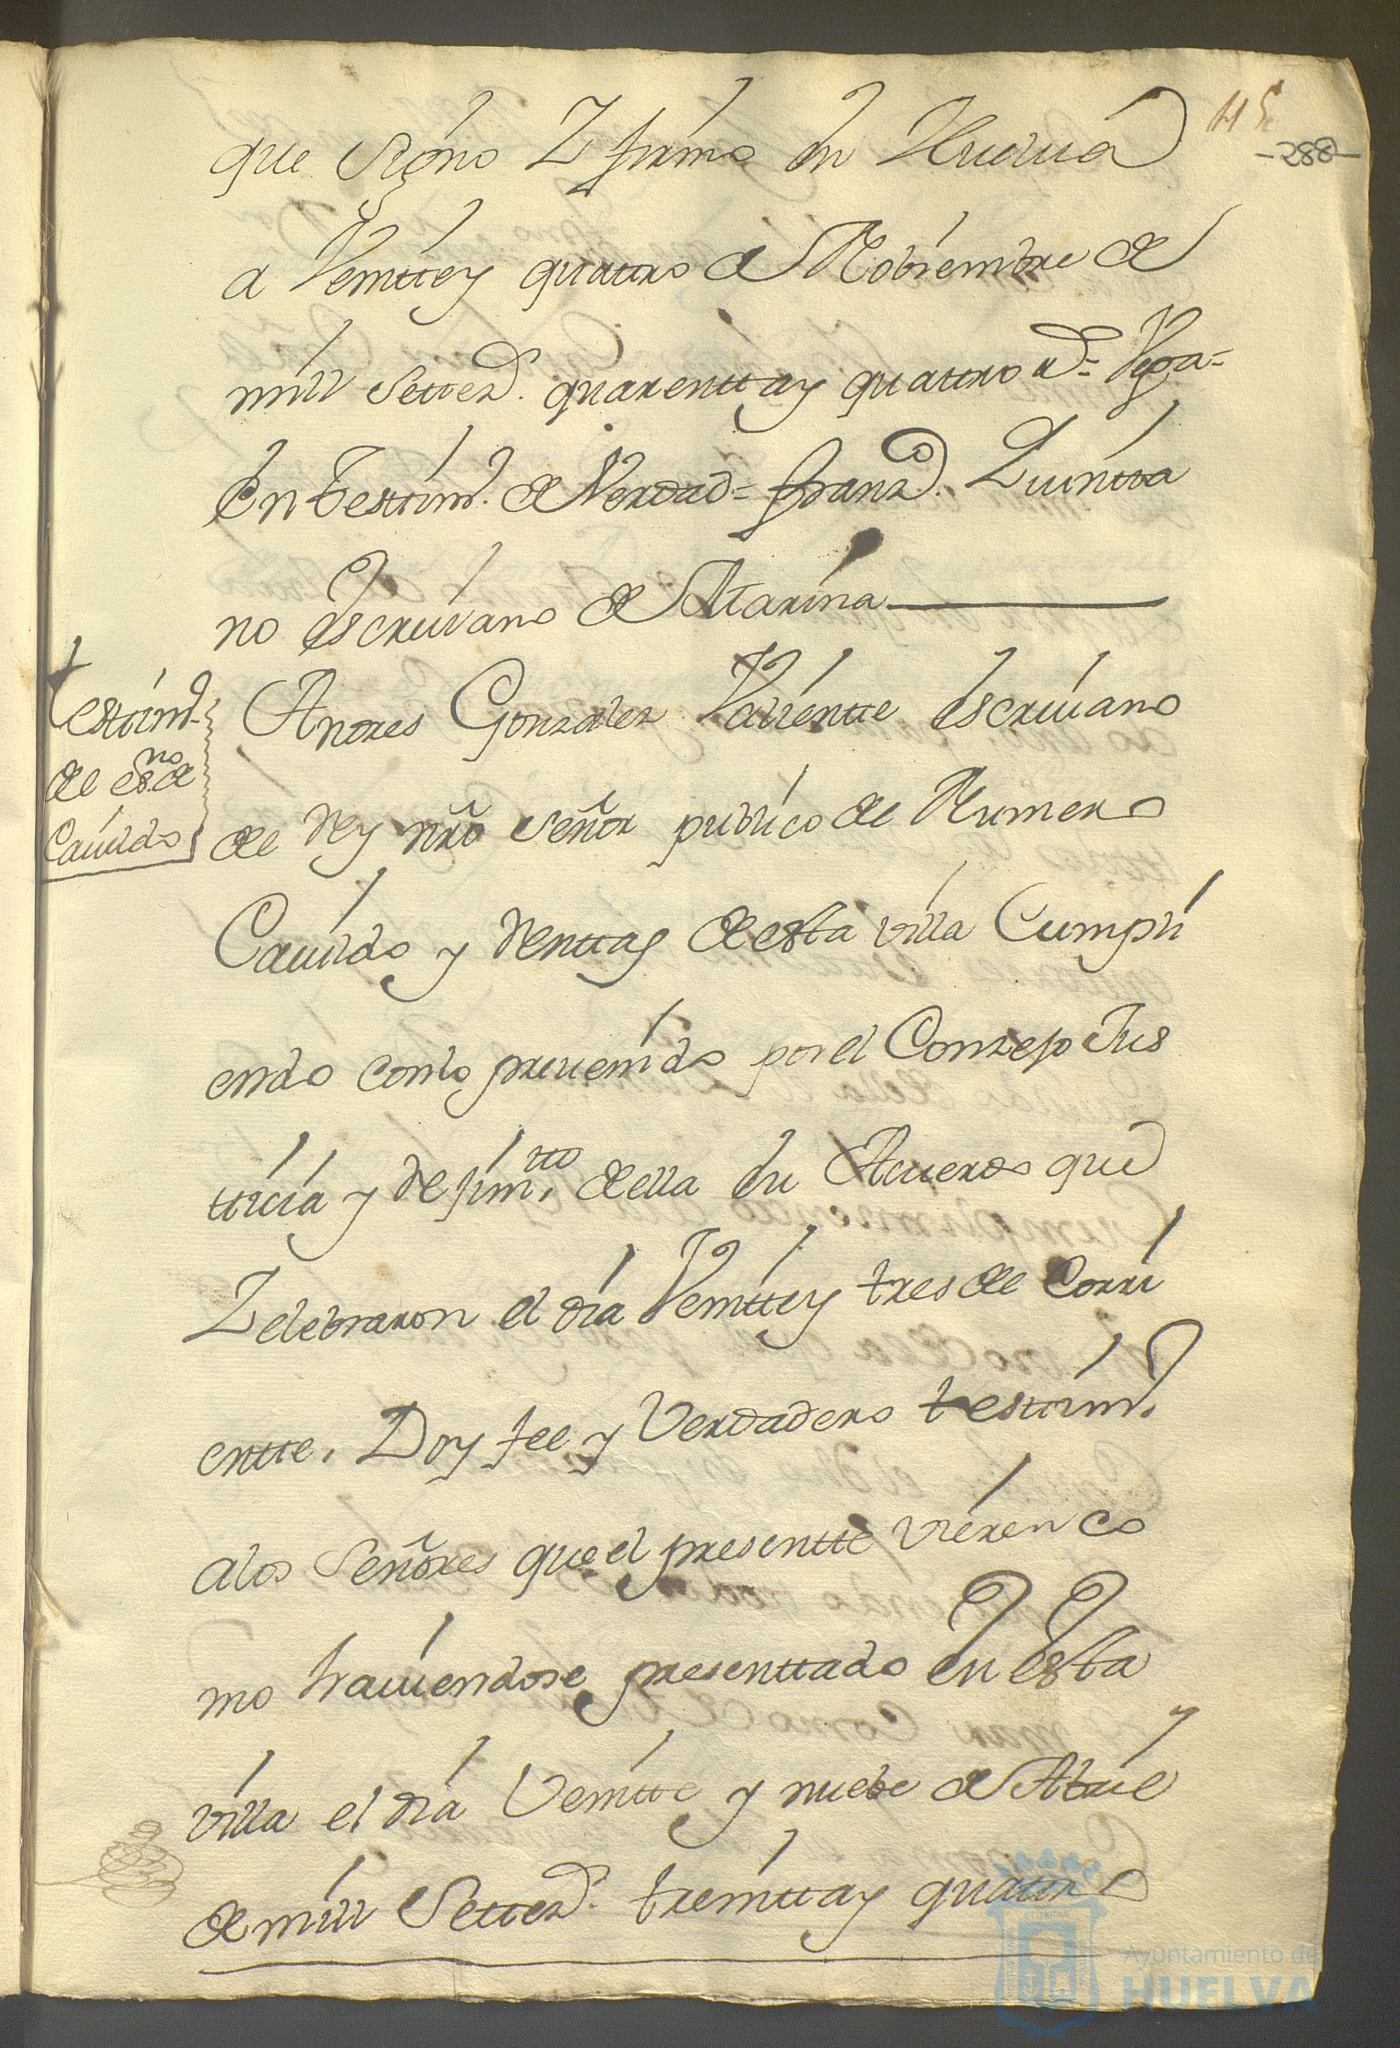 115
-288-
que signo Y firmo En Huelua
a Veintte y quattro de Nobiembre de
mill settez.s quarentta y quattro a.s = Vega =
En testtim.o de Verdad = Franz.co Quintta
no Escriuano de Marina
testtim.o
de es.no de
Cauildo
Andres Gonzalez Valientte Escriuano
del Rey nrõ señor publico del Numero
Cauildo y Renttas de esta villa Cumpli
endo con lo preuenido por el Conzejo Jus
tticia y Rejim.tto della En Acuerdo que
Zelebraron el dia Veintte y tres del Corri
entte, Doy fee y Verdadero testtim.o
a los señores que el presentte vieren co
mo hauiendose presenttado En Esta
villa el dia Veintte y nuebe de Abril
de mill settez.s treintta y quattro
Ayuntamiento de
HUELVA